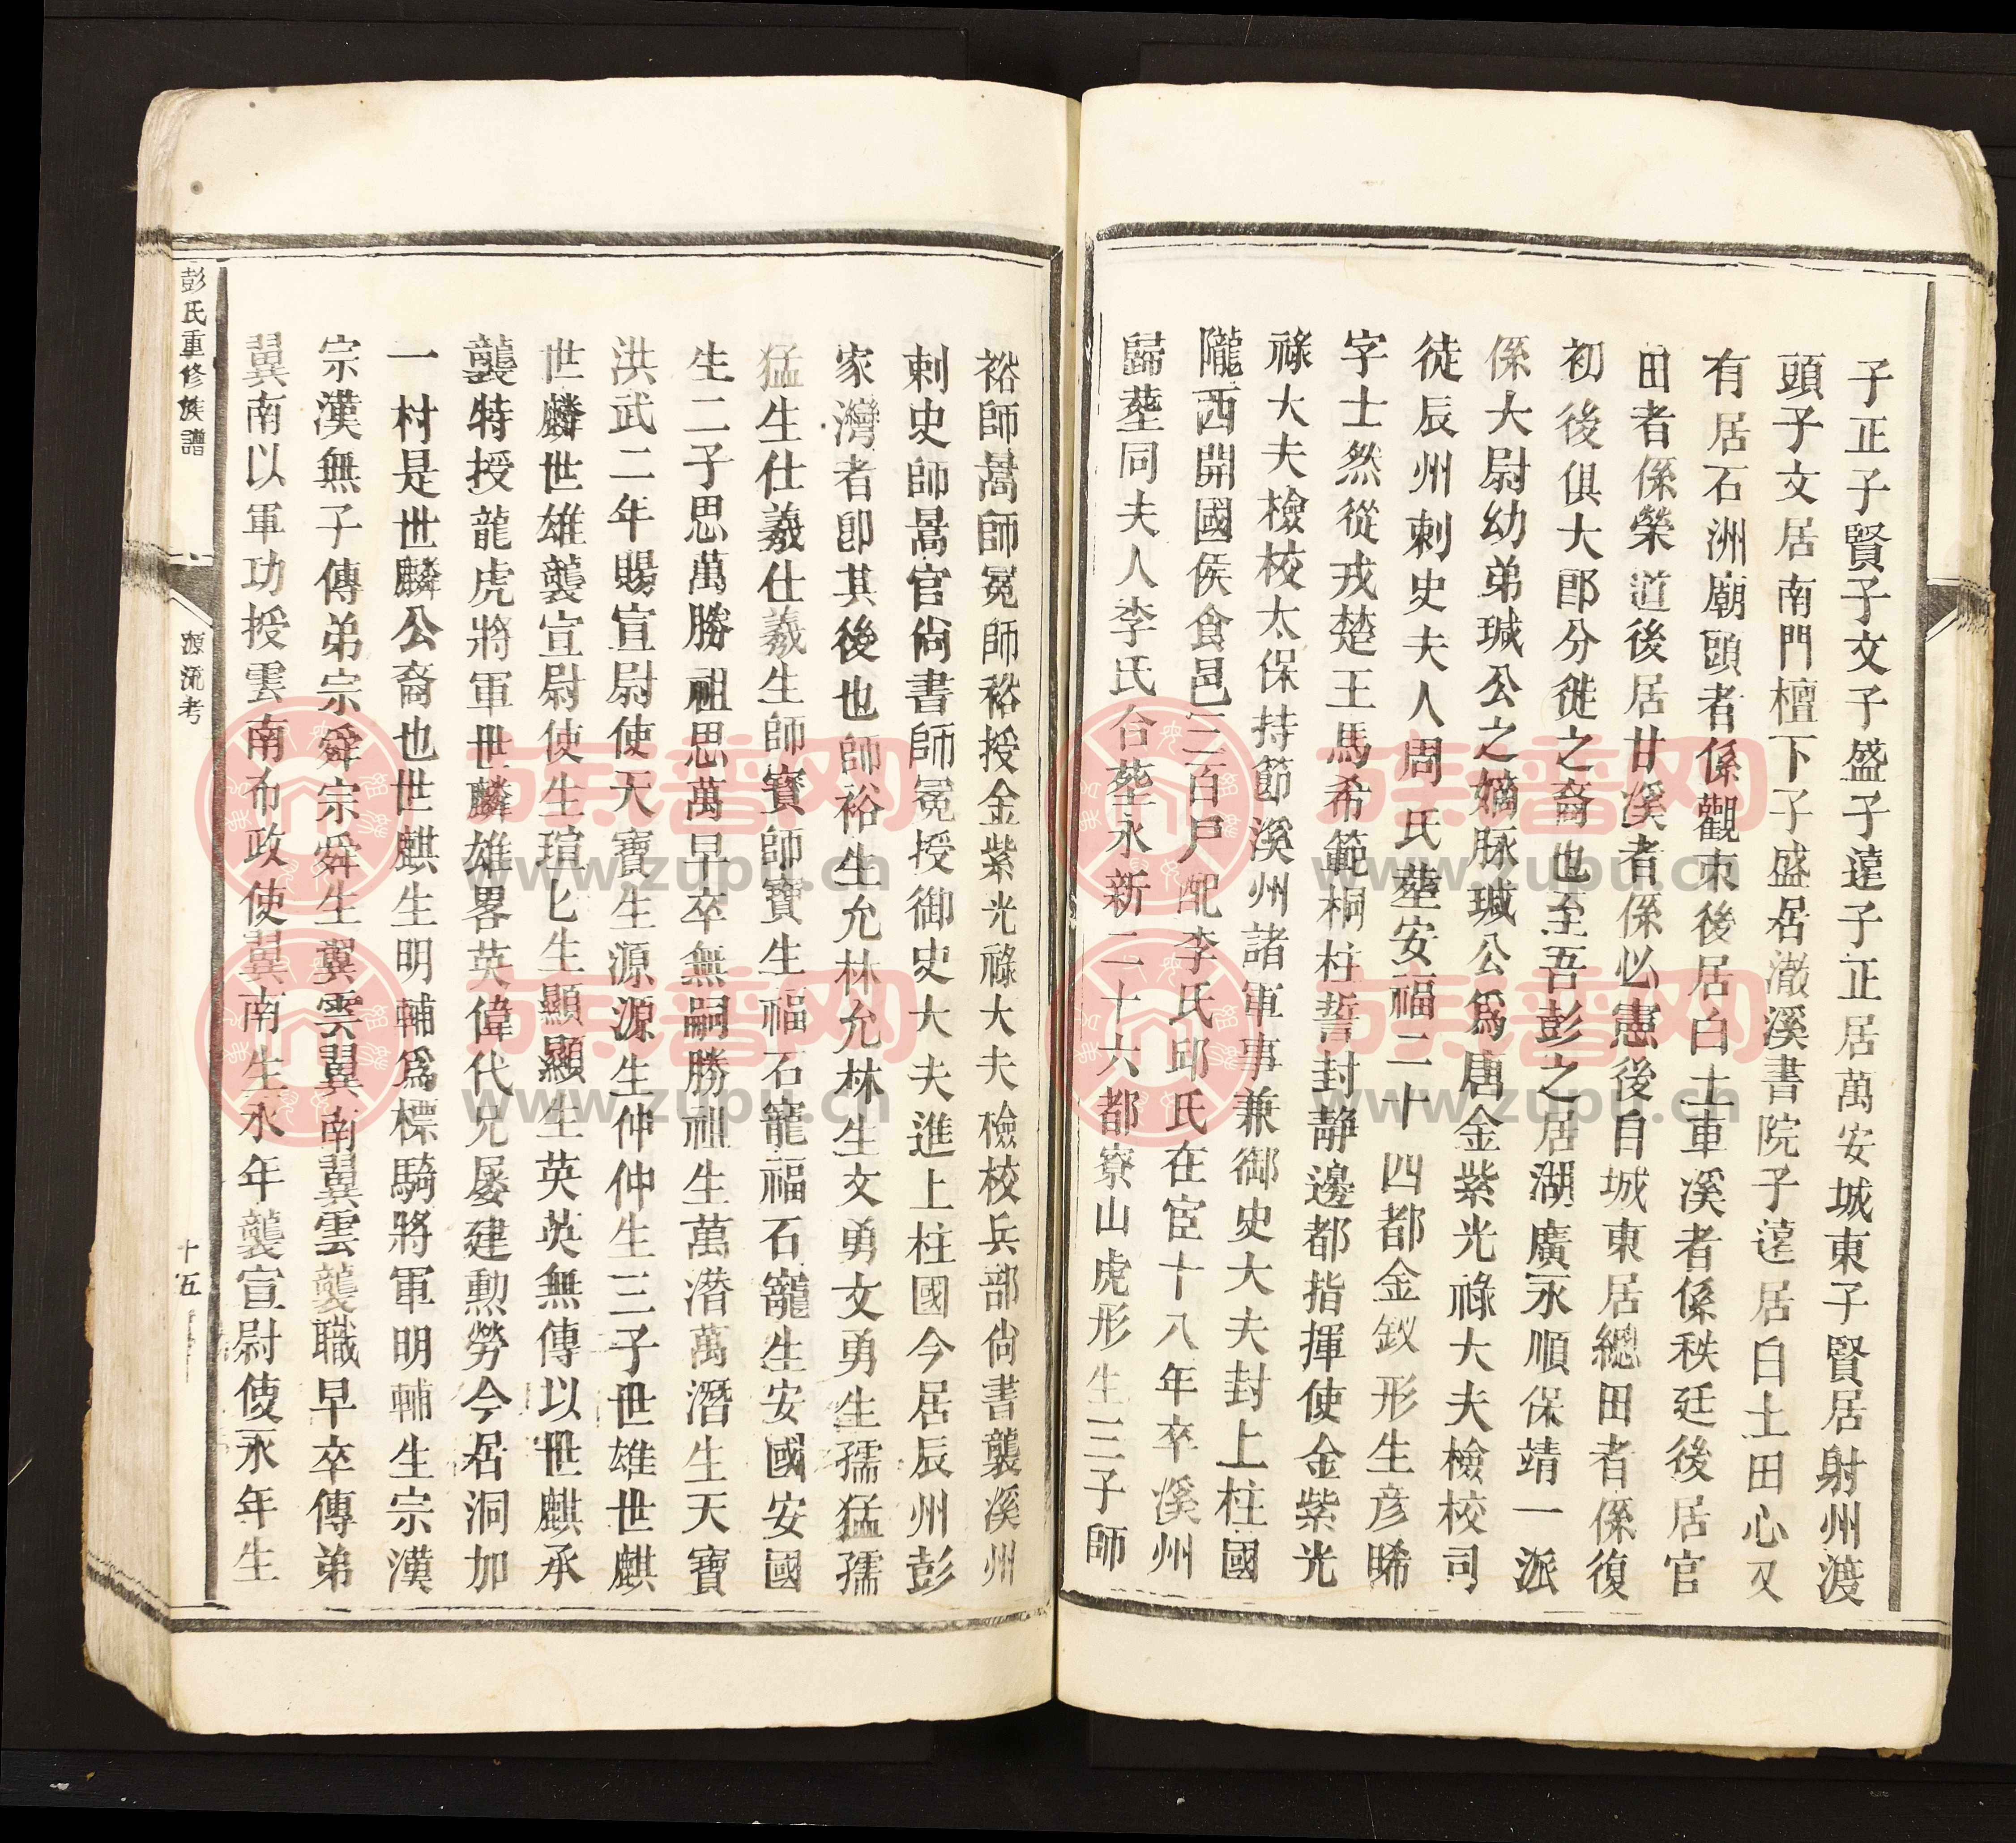 子正子賢子文子盛子蓬子正居萬安城東子賢居射州渡
頭子文居南門檀下子盛居澈溪書院子蓬居白土田心又
有居石洲廟頭者係觀東後居白土車溪者係秩廷後居官
田者係榮道後居甘溪者係必憲後自城東居總田者係復
初後俱大郎分徙之裔也至吾彭之居湖廣永順保靖一派
係大尉幼弟瑊公之嫡脉瑊公爲唐金紫光祿大夫檢校司
徒辰州刺史夫人周氏塟安福二十四都金釵形生彥晞
字士然從戎楚王馬希範桐柱誓封靜邊都指揮使金紫光
祿大夫檢校太保持節溪州諸軍事兼御史大夫封上柱國
隴西開國侯食邑三百戶配李氏邱氏在宦十八年卒溪州
歸塟同夫人李氏合塟永新二十六都寮山虎形生三子師
裕師暠師冕師裕授金紫光祿大夫檢校兵部尙書襲溪州
刺史師暠官尙書師冕授御史大夫進上柱國今居辰州彭
家灣者卽其後也師裕生允林允林生文勇文勇生孺猛孺
猛生仕羲仕羲生師寶師寶生福石寵福石寵生安國安國
生二子思萬勝祖思萬早卒無嗣勝祖生萬潛萬潛生天寶
洪武二年賜宣尉使天寶生源源生仲仲生三子世雄世麒
世麟世雄襲宣尉使生瑄匕生顯顯生英英無傳以世麒承
襲特授龍虎將軍世麟雄畧英偉代兄屡建勳勞今居洞加
一村是世麟公裔也世麒生明輔爲標騎將軍明輔生宗漢
宗漢無子傳弟宗舜宗舜生翼雲翼南翼雲襲職早卒傳弟
翼南以軍功授雲南布政使翼南生永年襲宣尉使永年生
彭氏重修族譜
源流考
十五
族譜网
www.zupu.cn
族譜网
www.zupu.cn
族譜网
www.zupu.cn
族譜网
www.zupu.cn